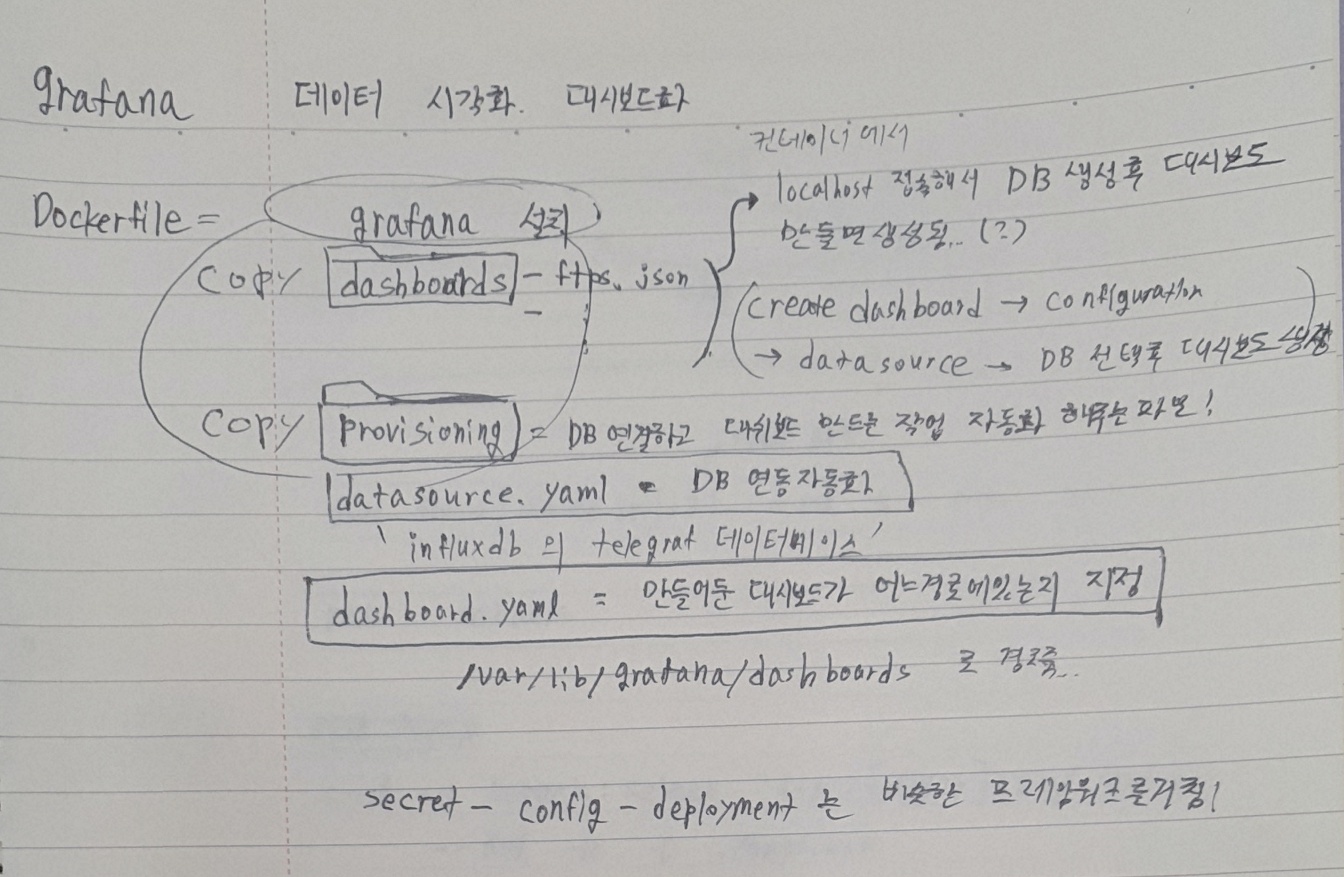 grafana 데이터 시각화. 대시보드화
컨테이너에서
Dockerfile = grafana 설치
localhost 접속해서 DB 생성후 대시보드
만들면 생성됨.. (?)
COPY dashboards - ftps.json
-
(create dashboard → configuration
→ datasource → DB 선택후 대시보드 생성)
COPY provisioning = DB 연결하고 대쉬보드 만드는 작업 자동화 해주는 파일!
datasource.yaml = DB 연동자동화
' influxdb 의 telegraf 데이터베이스 '
dashboard.yaml = 만들어둔 대시보드가 어느경로에있는지 지정
/var/lib/grafana/dashboards 로
secret - config - deployment 는 비슷한 프레임워크를거침!